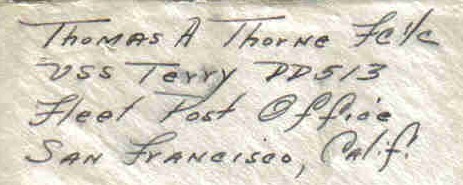 Thomas A Thorne FC 1/c
USS Terry DD513
Fleet Post Office
San Francisco, Calif.